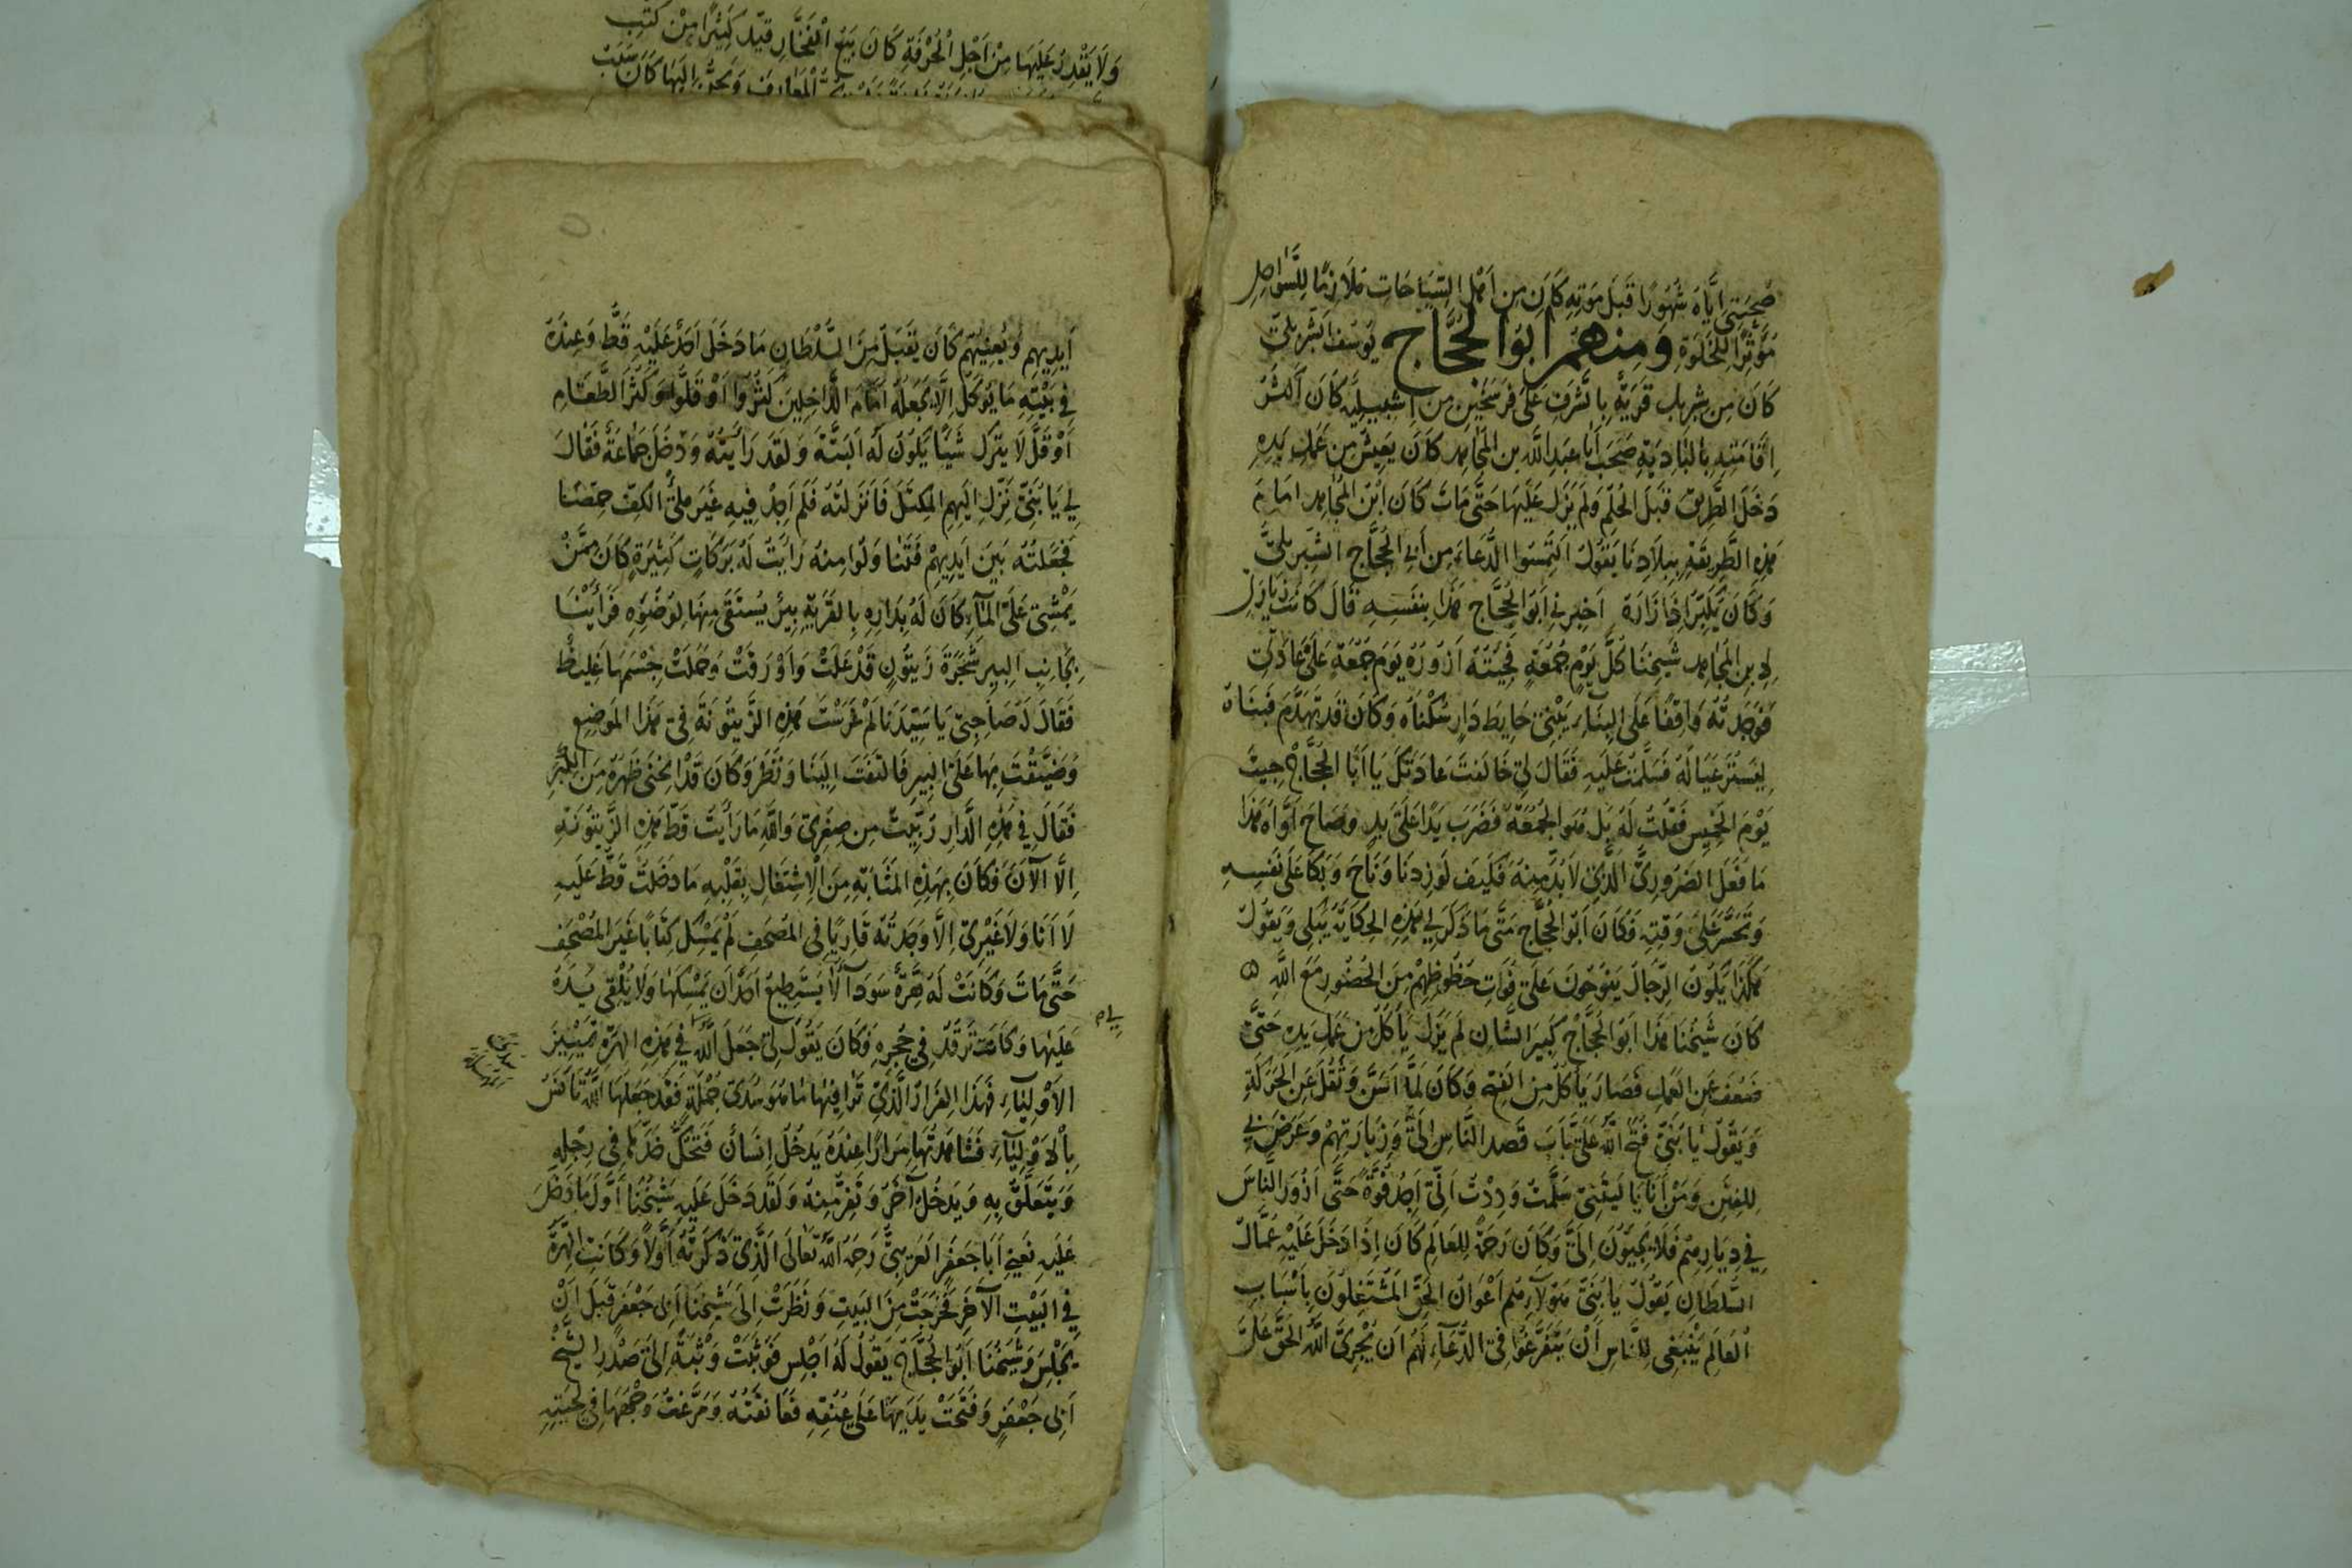 ولا يقدر عليها من اجل الحرفة كان يبيع الفخار قيد كثيرا من كتب
المعارف ويحن اليها كان سبب
صحبتي اياه شهورا قبل موته كان من اهل السياحات ملازما للسواحل
مؤثرا للخلوة ومنهم ابو الحجاج يوسف الشبربلي
كان من شبربل قرية بالشرف على فرسخين من اشبيلية كان اكثر
اقامته بالبادية صحب ابا عبد الله بن المجاهد كان يعيش من عمل يده
دخل الطريق قبل الحلم ولم يزل عليها حتى مات كان ابن المجاهد امام
هذه الطريقة ببلادنا يقول التمسوا الدعاء من ابي الحجاج الشبربلي
وكان اخبرني ابو الحجاج هذا بنفسه قال كانت زيارتي
لابن المجاهد شيخنا كل يوم جمعة فجيته ازوره يوم جمعة على عادتي
فوجدته واقفا على البناء يبني حايط دار سكناه وكان قد تهدم فبناه
ليستر عياله فسلمت عليه فقال لي خالفت عادتك يا ابا الحجاج جيت
يوم الخميس فقلت له بل هو الجمعة فضرب يدا على يد وصاح اواه هذا
ما فعل الضروري الذي لا بد منه فكيف لو زدنا وناح وبكا على نفسه
وتحسر على وقته وكان ابو الحجاج متى ما ذكر لي هذه الحكاية يبكي ويقول
هكذا يكون الرجال ينوحون على فوات حظوظهم من الحضور مع الله
كان شيخنا هذا ابو الحجاج كبير الشان لم يزل ياكل من عمل يده حتى
ضعف عن العمل فصار ياكل من الفتح وكان لما اسن وثقل عن الحركة
ويقول يا بني فتح الله علي باب قصد الناس الي وزيارتهم وعرضني
للفتن ومن انا يا ليتني سلمت وددت اني اجد قوة حتى ازور الناس
في ديارهم فلا يجيون الي وكان رحمة للعالم كان اذا دخل عليه عمال
السلطان يقول يا بني هولاء هم اعوان الحق المشتغلون باسباب
العالم ينبغي للناس ان يتفرغوا في الدعاء لهم ان يجري الله الحق على
ايديهم ويعينهم كان يقبل من السلطان ما دخل احد عليه قط وعنده
في بيته ما يوكل الا يجعله امام الداخلين كثروا او قلوا وكثر الطعام
او قل لا يترك شيا يكون له البتة ولقد رايته ودخل جماعة فقال
لي يا بني نزل اليهم المكتل فانزلته فلم اجد فيه غير ملئ الكف حمصا
فجعلته بين ايديهم فتناولوا منه رايت له بركات كثيرة كان ممن
يمشي على الماء كان له بداره بالقرية بير يستقى منها لوضوه فراينا
بجانب البير شجرة زيتون قد علت واورقت وحملت جسمها غليظ
فقال له صاحبي يا سيدنا لم غرست هذه الزيتونة في هذا الموضع
وضيقت بها على البير فالتفت الينا ونظر وكان قد انحنى ظهره من الكبر
فقال في هذه الدار ربيت من صغري والله ما رايت قط هذه الزيتونة
الا الآن فكان بهذه المثابة من الاشتغال بقلبه ما دخلت قط عليه
لا انا ولا غيري الا وجدته قاريا في المصحف لم يمسك كتابا غير المصحف
حتى مات وكانت له هرة سودآ لا يستطيع احد ان يمسكها ولا يلقي يده
عليها وكانت ترقد في حجره وكان يقول لي جعل الله في هذه الهرة تمييز
الاولياء فهذا الفرار الذي ترا فيها ما هو سدى جملة فقد جعلها الله تانس
بالاولياء فشاهدتها مرارا عنده يدخل انسان فتحك خدها في رجله
ويتعلق به ويدخل آخر وتفر منه ولقد دخل عليه شيخنا اول ما دخل
عليه نعني ابا جعفر العريبي رحمه الله تعالى الذي ذكرته اولا وكانت الهرة
في البيت الآخر فخرجت من البيت ونظرت الى شيخنا ابي جعفر قبل ان
يجلس وشيخنا ابو الحجاج يقول له اجلس فوثبت وثبة الى صدر الشيخ
ابي جعفر وفتحت يديها على عنقه فعانقته ومرغت وجهها في لحيته